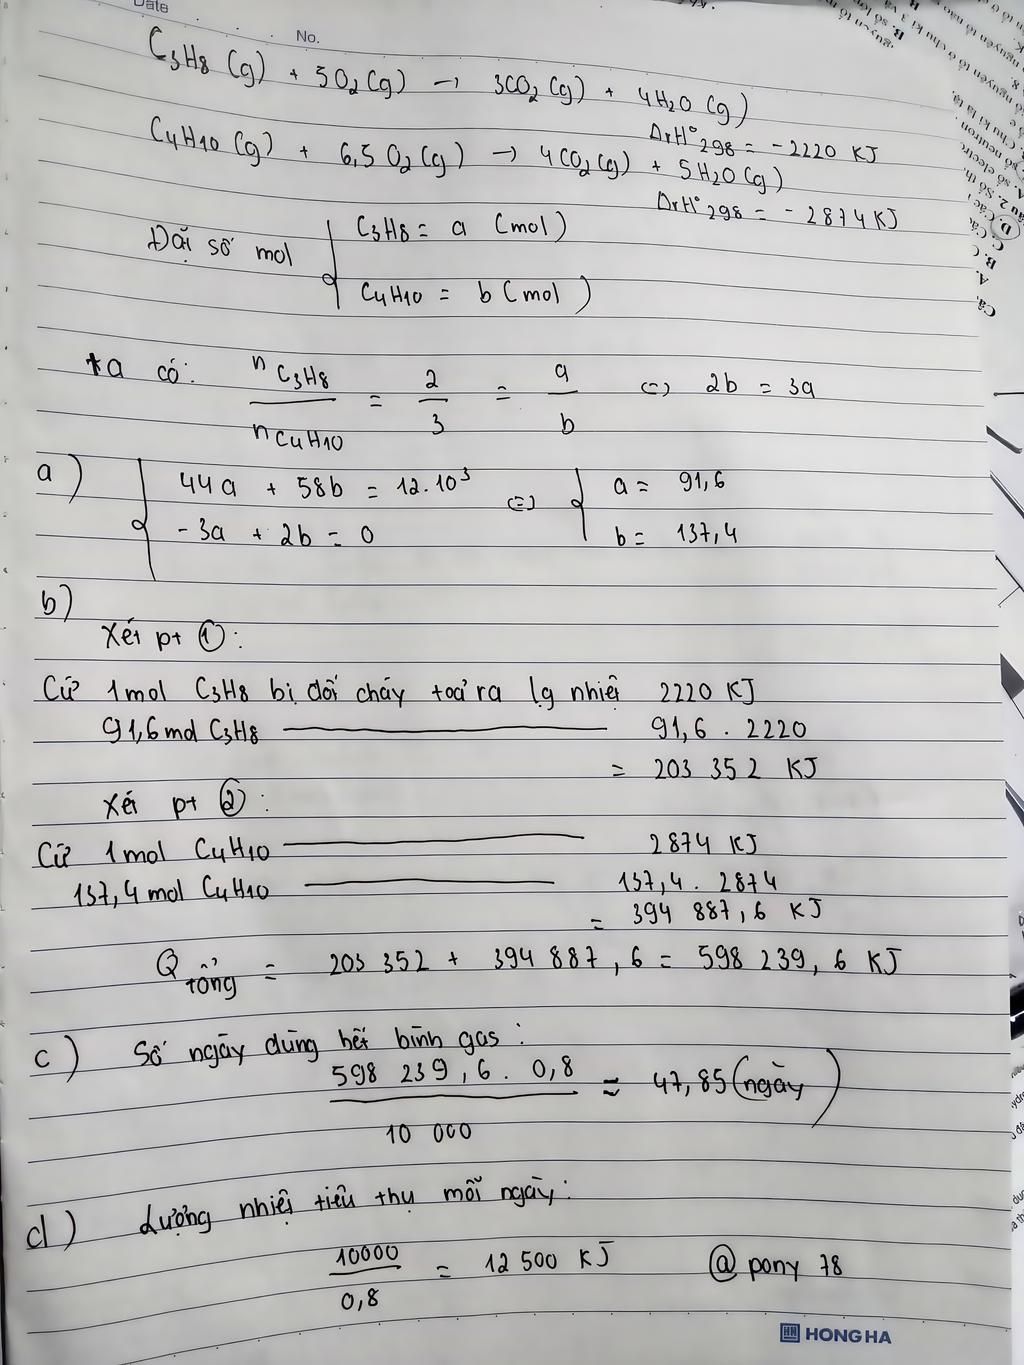 Date
No.
C3H8 (g) + 5O2 (g) → 3CO2 (g) + 4H2O (g)
ΔrH°298 = -2220 KJ
C4H10 (g) + 6,5 O2 (g) → 4CO2 (g) + 5H2O (g)
ΔrH°298 = - 2874 KJ
Đặt số mol
C3H8 = a (mol)
C4H10 = b (mol)
Ta có: nC3H8 / nC4H10 = 2 / 3 = a / b ⇔ 2b = 3a
a) 44a + 58b = 12.10³ ⇔ a = 91,6
- 3a + 2b = 0 b = 137,4
b)
Xét pt ①:
Cứ 1 mol C3H8 bị đốt cháy toả ra lg nhiệt 2220 KJ
91,6 mol C3H8 —— 91,6 . 2220
= 203 352 KJ
Xét pt ②:
Cứ 1 mol C4H10 —— 2874 KJ
137,4 mol C4H10 —— 137,4 . 2874
= 394 887,6 KJ
Q tổng = 203 352 + 394 887,6 = 598 239,6 KJ
c) Số ngày dùng hết bình gas:
598 239,6 . 0,8 / 10 000 ≈ 47,85 (ngày)
d) Lượng nhiệt tiêu thụ mỗi ngày:
10000 / 0,8 = 12 500 KJ
@ pony 78
HONG HA